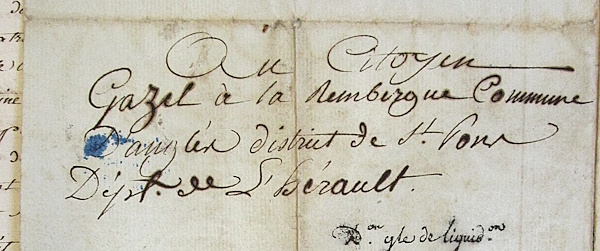 Au Citoyen
Gazel à la Rembergue Commune
D'anglès district de St. Pons
Dépt. de L'hérault.
Don gle de liquidon